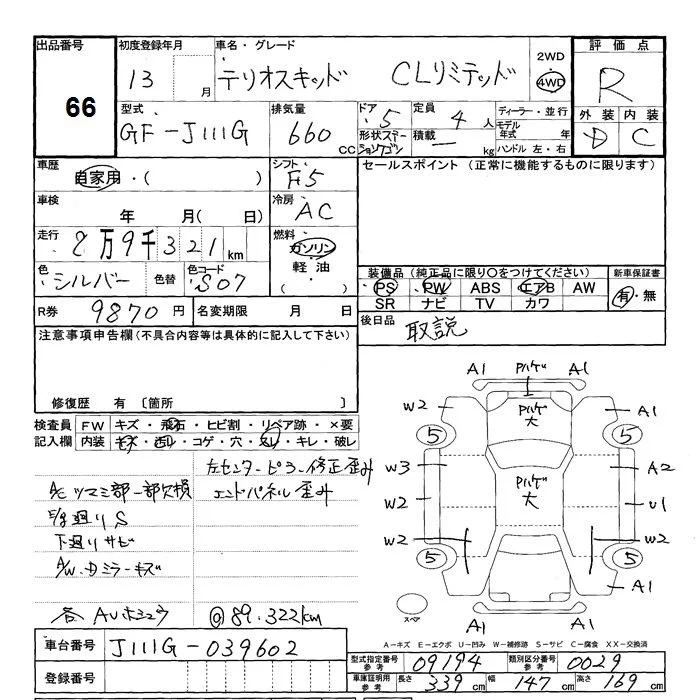 出品番号 初度登録年月 車名・グレード 評価点
66 13 月 テリオスキッド CLリミテッド 2WD 4WD R
型式 排気量 ドア 定員 ディーラー・並行 外装 内装
GF-J111G 660 CC 5 4人 モデル年式 年 D C
形状 ステーションワゴン 積載 — kg ハンドル 左・右
車歴 自家用・( ) シフト F5 セールスポイント (正常に機能するものに限ります)
車検 年 月( 日) 冷房 AC
走行 8万9千321km 燃料 ガソリン
軽油
( )
色 シルバー 色替 色コード S07
装備品 (純正品に限り○をつけてください) 新車保証書
PS PW ABS エアB AW 有・無
SR ナビ TV カワ
R券 9870円 名変期限 月 日
後日品 取説
注意事項申告欄(不具合内容等は具体的に記入して下さい)
修復歴 有 〔箇所 〕
検査員記入欄 FW キズ・飛石・ヒビ割・リペア跡・×要
内装 キズ・汚れ・コゲ・穴・スレ・キレ・破レ
左センターピラー修正歪み
A/C ツマミ部一部欠損 エンドパネル歪み
廻りS
下廻りサビ
ミラーキズ
各AUホシュウ ◎89.322km
A1 Pハゲ A1
W2 Pハゲ大 A1
5 5
W3 A2
W2 Pハゲ大 U1
W2 W2
5 5
A1
スペア A1 A1
A-キズ E-エクボ U-凹み W-補修跡 S-サビ C-腐食 XX-交換済
車台番号 J111G-039602
型式指定番号 参考 09194 類別区分番号 参考 0029
登録番号
車庫証明用 参考 長さ 339cm 幅 147cm 高さ 169cm